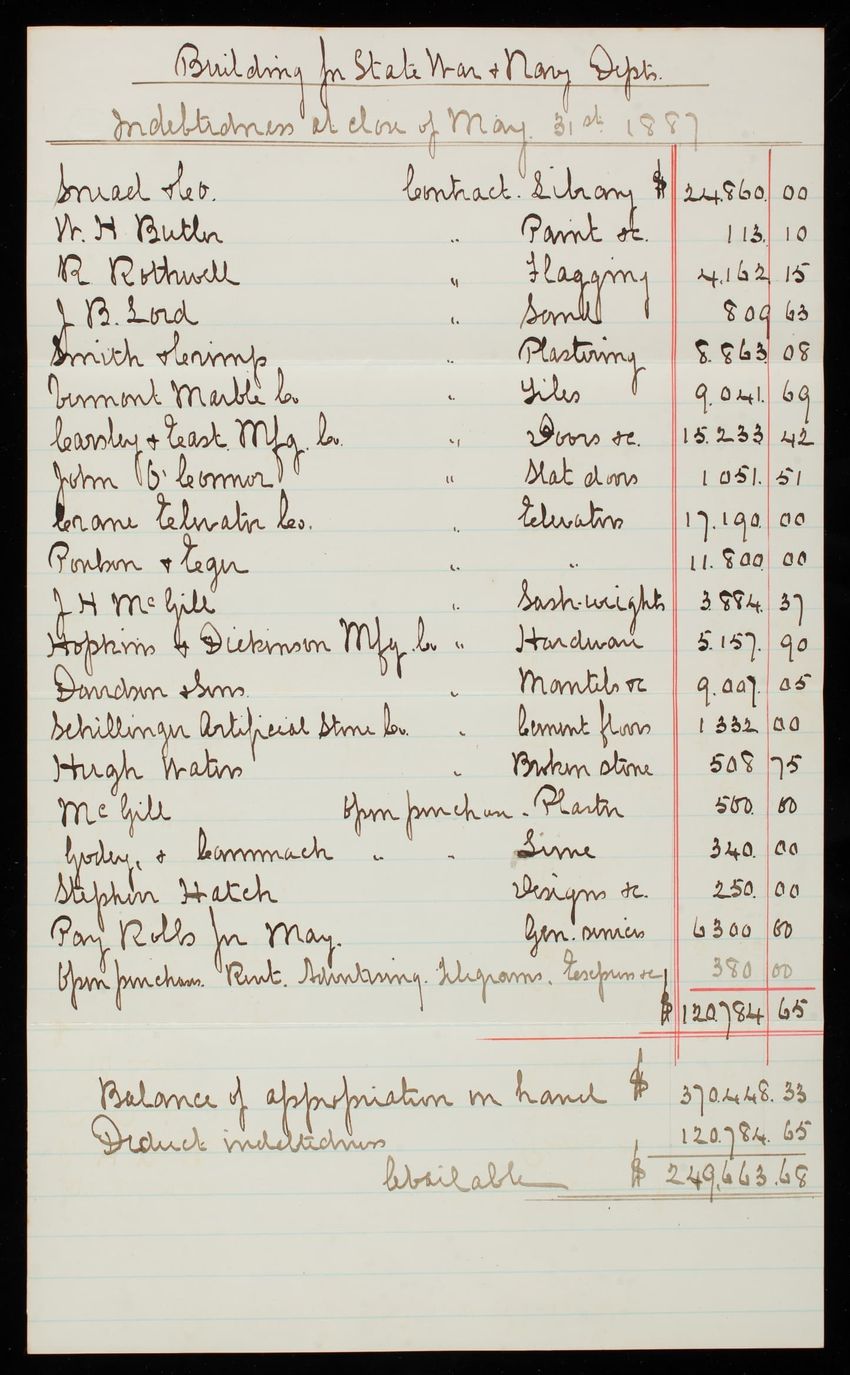 Building for State War & Navy Depts.
Indebtedness at close of May. 31st 1887
Snead & Co. Contract. Library $ 24.860. 00
W. H Butler " Paint &c. 113. 10
R Rothwell " Flagging 4.162 15
J B. Lord " Sand 809 63
Smith & Crimp " Plastering 8.863 08
Vermont Marble Co " Tiles 9.041. 69
Carsley & East. Mfg. Co. " Doors &c. 15.233 42
John O'Connor " Slat doors 1051. 51
Crane Elevator Co. " Elevators 17.190. 00
Poulson & Eger " " 11.800 00
J H McGill " Sash-weights 3.884. 37
Hopkins & Dickinson Mfg. Co " Hardware 5.157. 90
Davidson & Sons. " Mantels &c 9.007. 05
Schillinger Artificial Stone Co. " Cement floors 1332 00
Hugh Waters " Broken stone 508 75
McGill Open purchase. Plaster 500. 00
Godey, & Cammack " " Lime 340. 00
Stephen Hatch Designs &c. 250. 00
Pay Rolls for May. Gen. services 6300 00
Open purchases. Rent. Advertising. Telegrams. Express &c 380 00
$ 120.784 65
Balance of appropriation on hand $ 370.448. 33
Deduct indebtedness 120.784. 65
Available $ 249,663.68